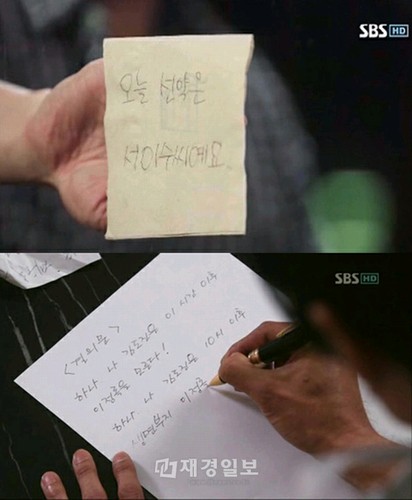 SBS HD
오늘 선약은
서이수씨예요
SBS HD
<결의문>
하나 나 김도진은 이 시간 이후
이정록을 모른다!
하나 나 김도진은 10시 이후
생면부지 이정록
재경일보